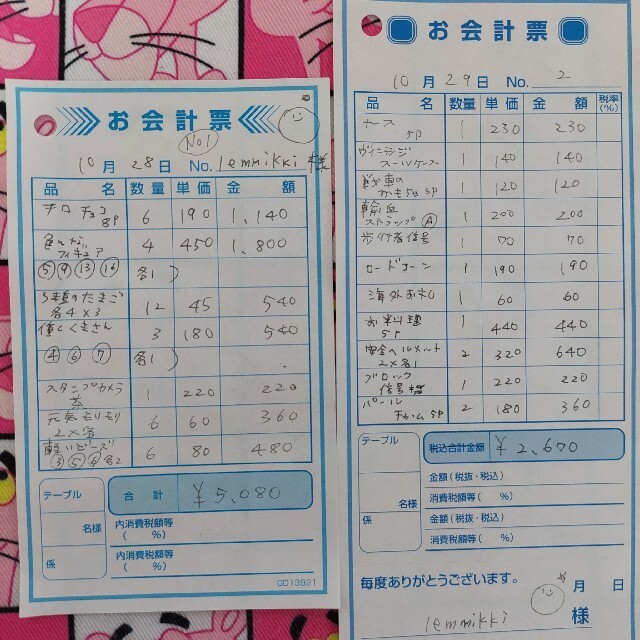 お会計票
No1
10月28日 No. lemmikki 様
品名 数量 単価 金額
チロチョコ 8P 6 190 1,140
色んなフィギュア 4 450 1,800
⑤⑨⑬⑯ 各1)
3種のたまご
各4×3 12 45 540
働くくまさん 3 180 540
④⑥⑦ 各1)
スタンプカメラ
茶 1 220 220
元気もりもり
2×各 6 60 360
軽いビーズ 6 80 480
各2
テーブル
合計 ¥5,080
名様
内消費税額等
( %)
係
内消費税額等
( %)
GC13921
お会計票
10月29日 No. 2
品名 数量 単価 金額 税率(%)
ナース
5P 1 230 230
ヴィンテージ
スーツケース 1 140 140
戦車の
おもちゃ5P 1 120 120
輸血
ストラップ Ⓐ 1 200 200
歩行者信号 1 70 70
ロードコーン 1 190 190
海外お札 1 60 60
お料理
5P 1 440 440
安全ヘルメット
2×各1 2 320 640
ブロック
信号機 1 220 220
パール
チャーム5P 2 180 360
テーブル
税込合計金額 ¥2,670
名様
金額(税抜・税込)
消費税額等( %)
係
金額(税抜・税込)
消費税額等( %)
毎度ありがとうございます。 月 日
lemmikki 様